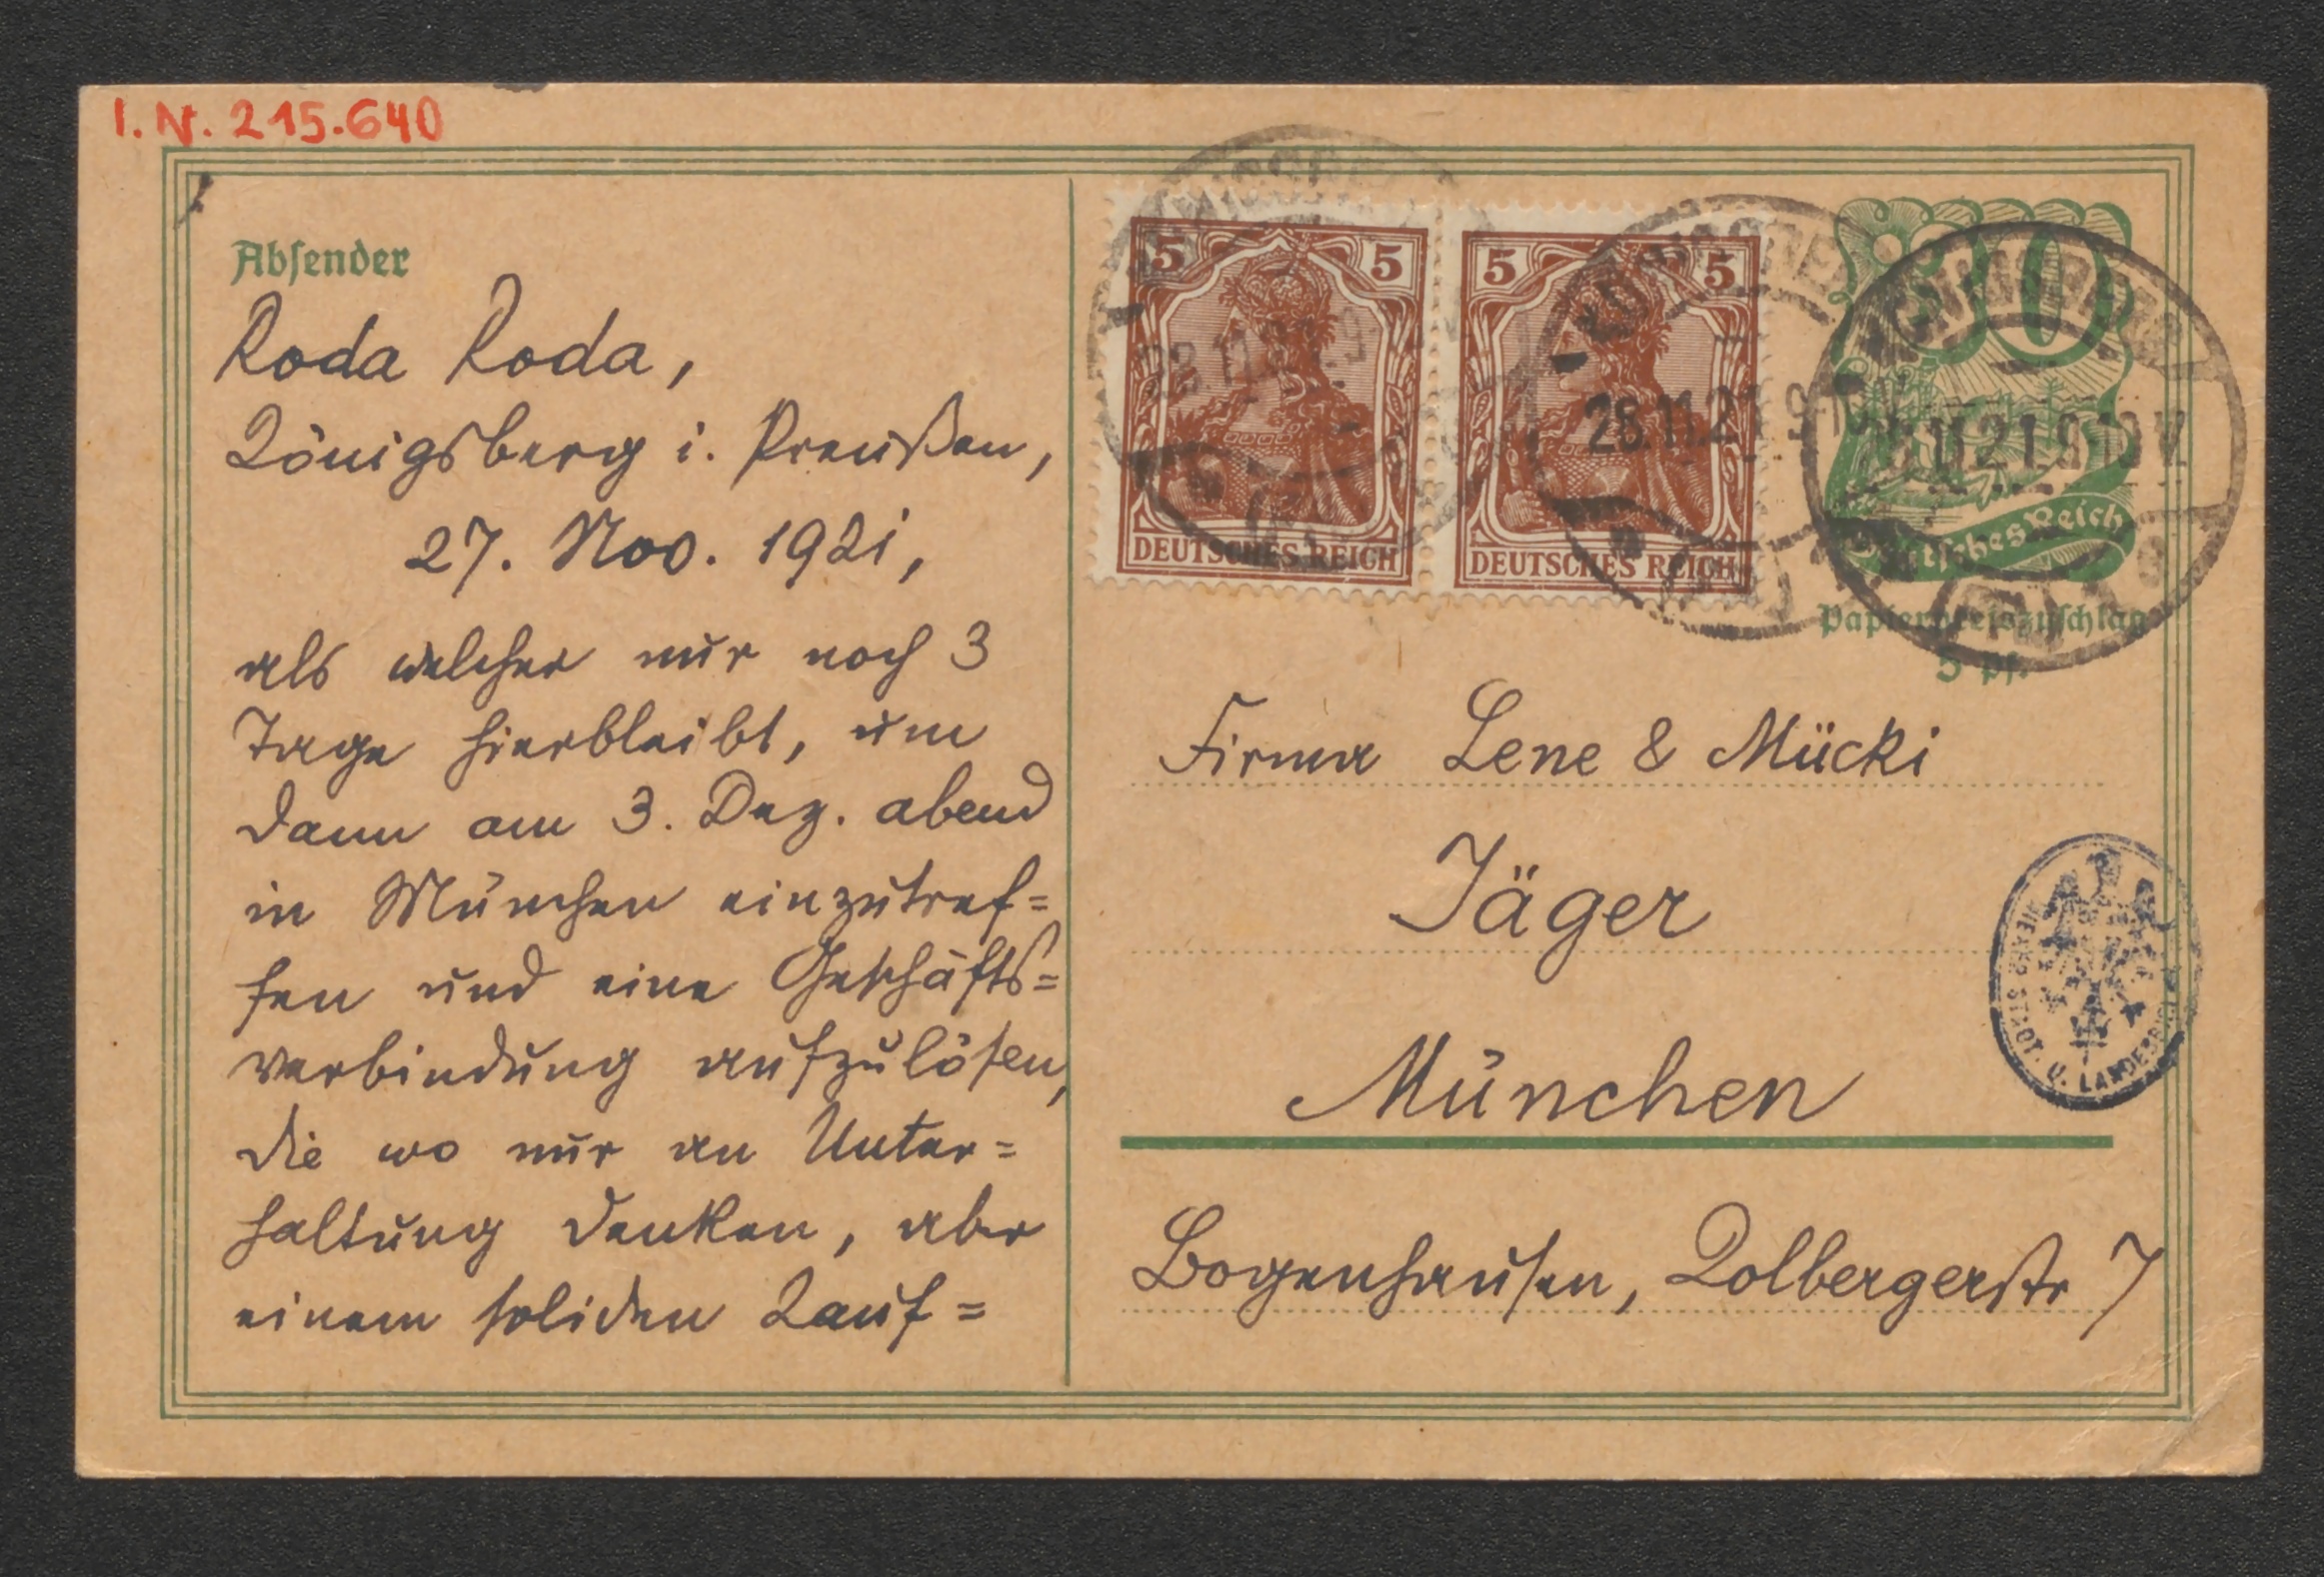 I. N. 215.640
Absender
Roda Roda,
Königsberg i. Preußen,
27. Nov. 1921,
als welcher nur noch 3
Tage hierbleibt, um
dann am 3. Dez. abend
in München einzutref=
fen und eine Geschäfts=
verbindung aufzulösen,
die wo nur an Unter=
haltung denken, aber
einem soliden Kauf=
5 5
DEUTSCHES REICH
5 5
DEUTSCHES REICH
30
Deutsches Reich
28.11.21.9-10V
28.11.21.9-10V
Papierpreiszuschlag
5 Pf.
Firma Lene & Mücki
Jäger
München
Bogenhausen, Kolbergerstr 7
STADT. U. LANDESBIBL